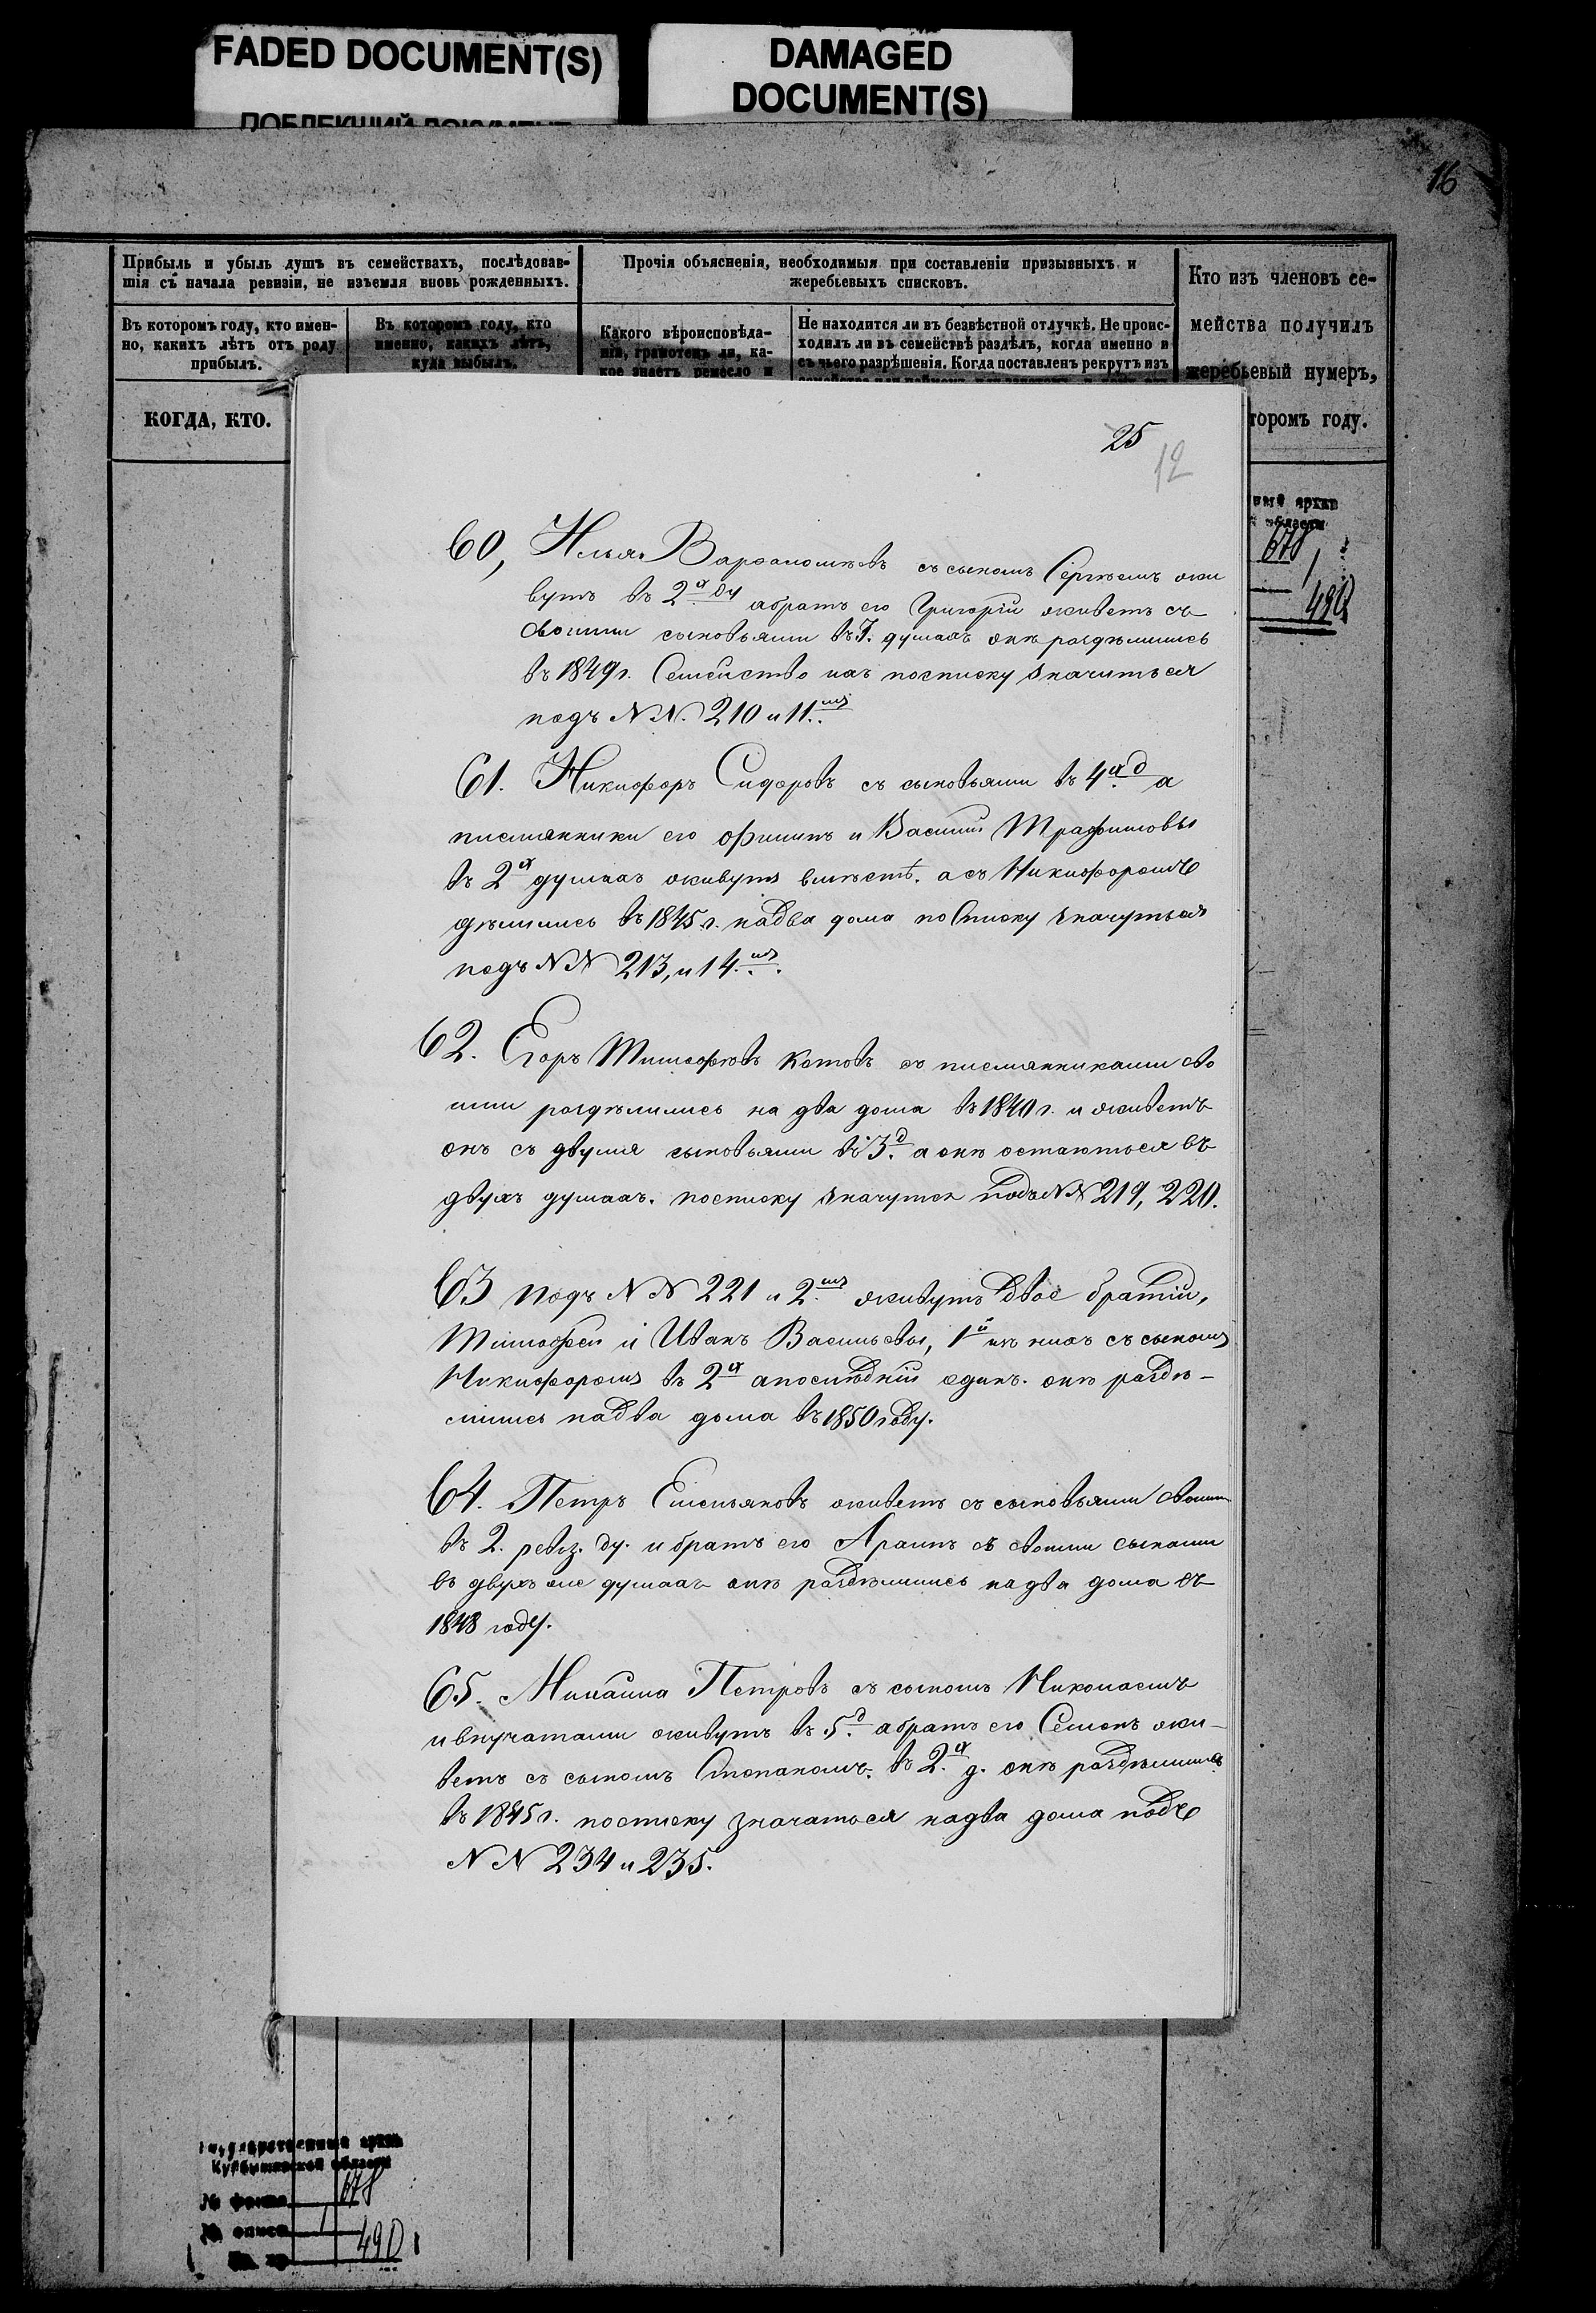 FADED DOCUMENT(S)
DAMAGED
DOCUMENT(S)
16
Прибыль и убыль душъ въ семействахъ, послѣдовав-
шія съ начала ревизіи, не изъемля вновь рожденныхъ.
Прочія объясненія, необходимыя при составленіи призывныхъ и
жеребьевыхъ списковъ.
Кто изъ членовъ се-
мейства получилъ
жеребьевый нумеръ,
торомъ году.
Въ которомъ году, кто имен-
но, какихъ лѣтъ отъ роду
прибылъ.
Въ которомъ году, кто
именно, какихъ лѣтъ,
куда выбылъ.
Какого вѣроисповѣда-
нія, грамотенъ ли, ка-
кое знаетъ ремесло и
Не находится ли въ безвѣстной отлучкѣ. Не проис-
ходилъ ли въ семействѣ раздѣлъ, когда именно и
съ чьего разрѣшенія. Когда поставленъ рекрутъ изъ
КОГДА, КТО.
25
12
678
1
490
60, Илья Варѳоломѣевъ съ сыномъ Сергѣемъ жи
вутъ въ 2х ду абратъ его Григорій живетъ съ
своими сыновьями въ 7. душахъ онѣ раздѣлились
въ 1849 г. Семейство ихъ посписку значиться
подъ N N. 210 и 11.мъ
61. Никифоръ Сидоровъ съ сыновьями въ 4хд а
племянники его Филипъ и Василій Трафимовы
въ 2х душахъ живутъ вмѣстѣ. а съ Никифоромъ
дѣлились въ 1845 г. надва дома по списку значуться
подъ N N 213, и 14.мъ.
62. Егоръ Тимофѣевъ Котовъ съ племянниками сво
ими раздѣлились на два дома въ 1840 г. и живетъ
онъ съ двумя сыновьями въ 3.д а онѣ остаються въ
двухъ душахъ. посписку значутся подъ N N 219, 220.
63 подъ N N 221 и 2.мъ живутъ двое братій,
Тимофей и Иванъ Васильевы, 1й изъ нихъ съ сыномъ
Никифоромъ въ 2х апослѣдній одинъ. онѣ раздѣ-
лились надва дома въ 1850 году.
64. Петръ Емельяновъ живетъ съ сыновьями своими
въ 2. ревиз. ду. и братъ его съ своими сынами
въ двухъ же душахъ онѣ раздѣлились на два дома въ
1848 году.
65. Михаила Петровъ съ сыномъ Николаемъ
ивнучатами живутъ въ 5.д абратъ его Семенъ жи-
ветъ съ сыномъ Степаномъ. въ 2.х д. онѣ раздѣлились
въ 1845 г. посписку значаться надва дома подъ
N N 234 и 235.
Государственный архив
Куйбышевской области
№ фонда 678
№ описи 1
Ед. хр. 490